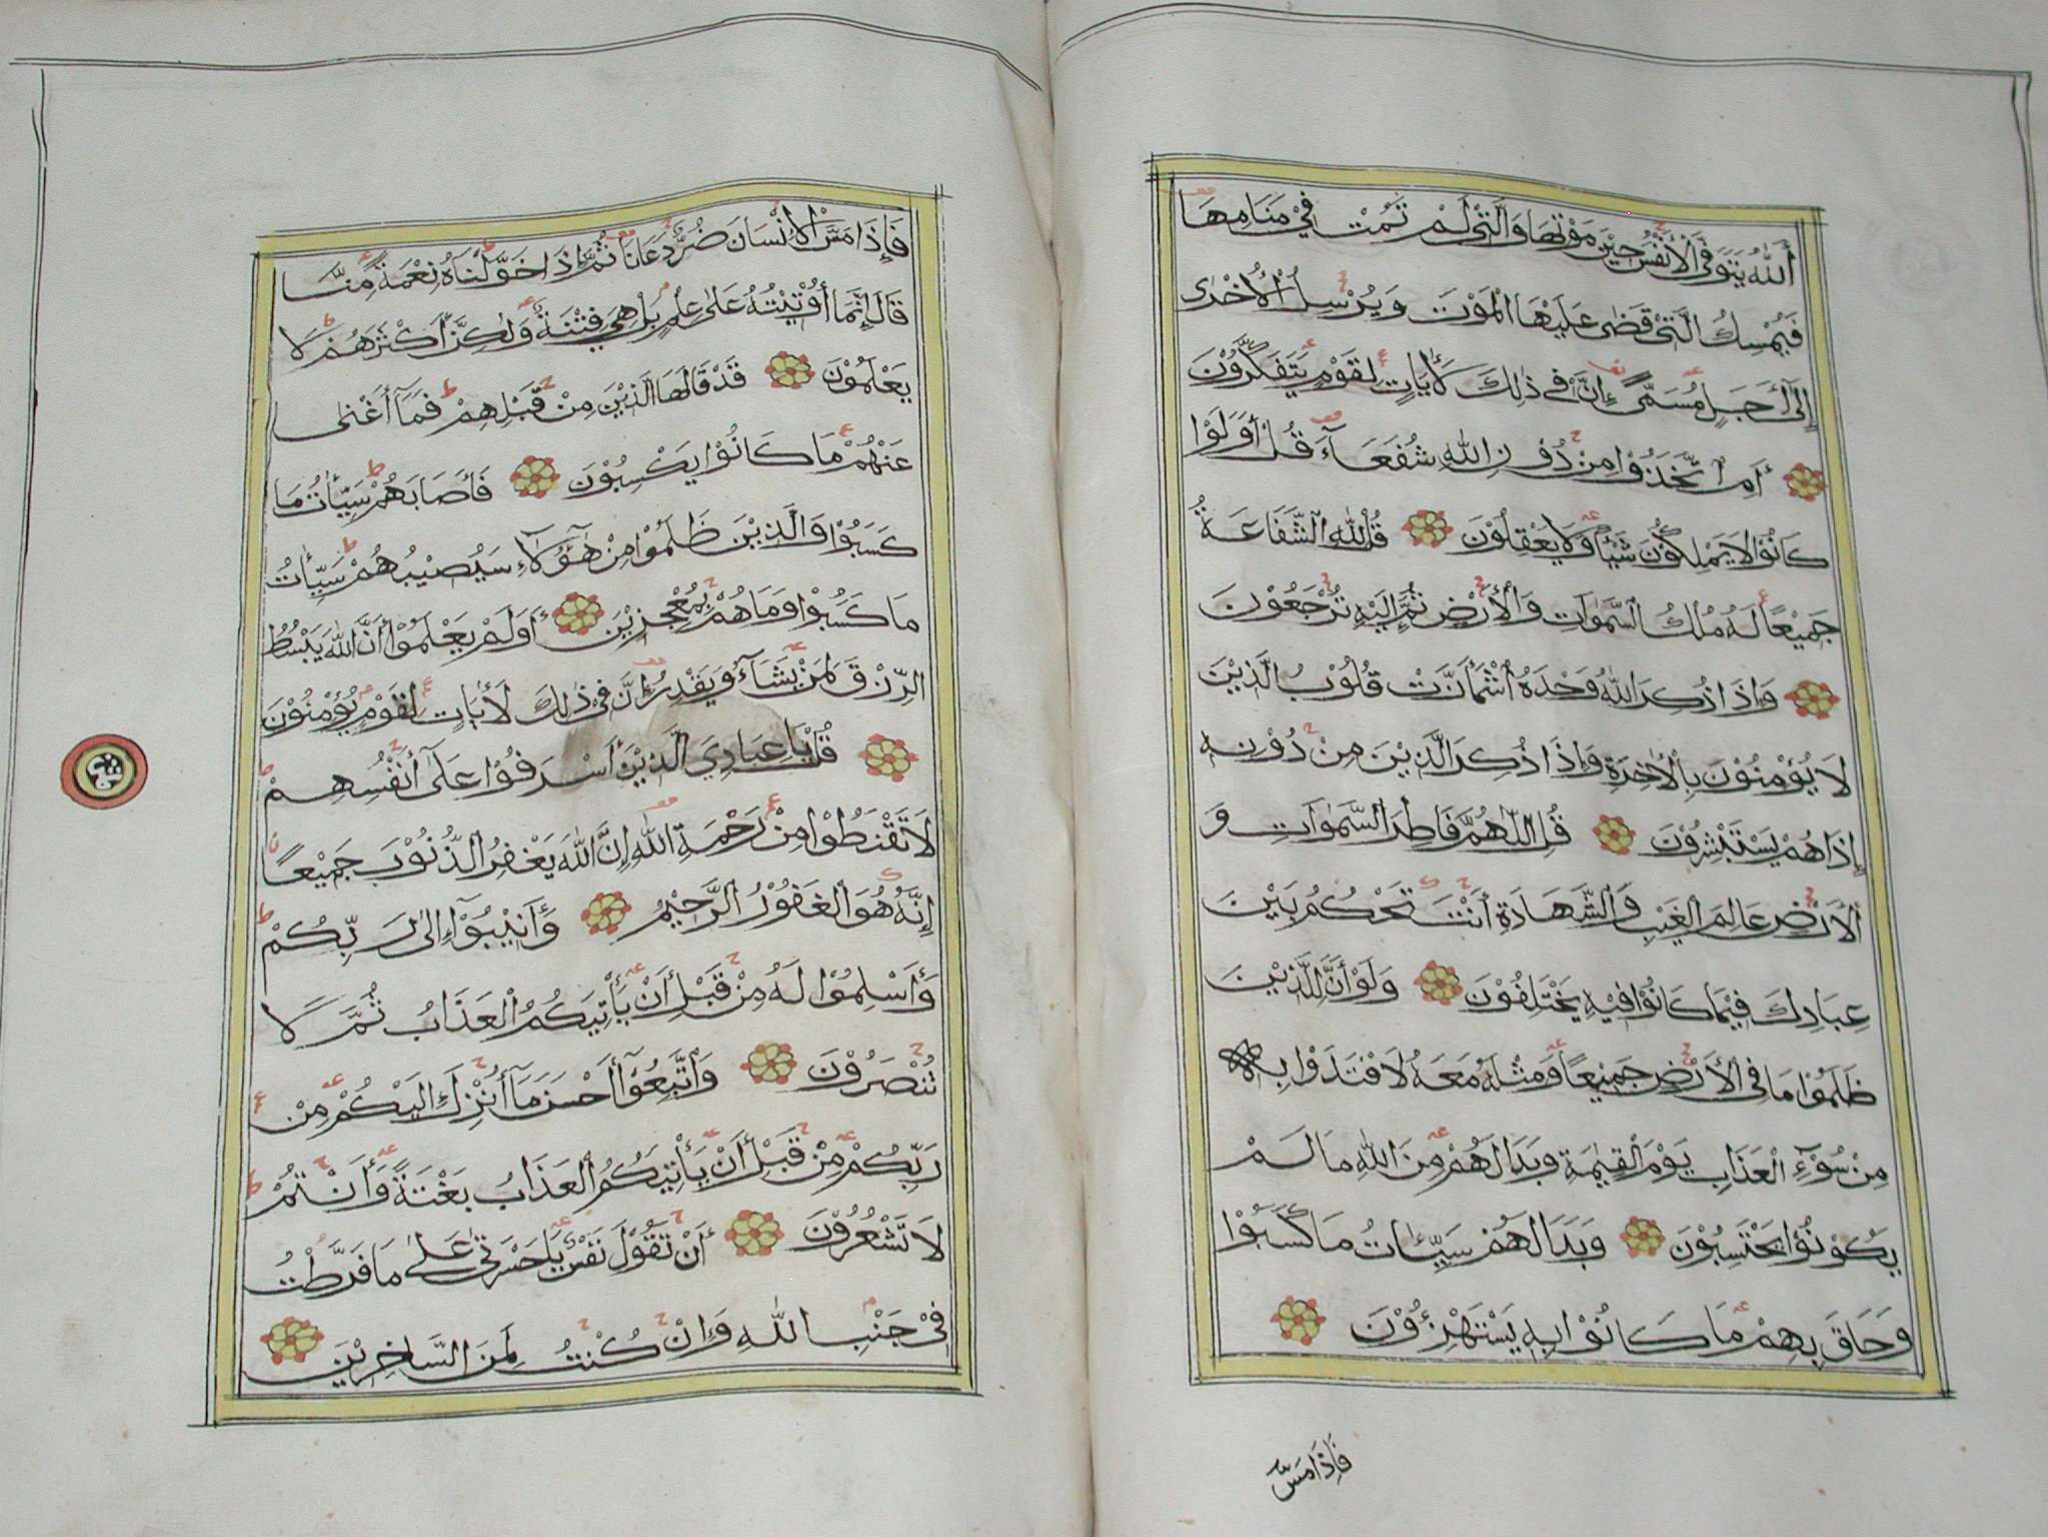 أَللّٰهُ يَتَوَفَّى الْأَنْفُسَ حِيْنَ مَوْتِهَا وَالَّتِيْ لَمْ تَمُتْ فِيْ مَنَامِهَا
فَيُمْسِكُ الَّتِيْ قَضٰى عَلَيْهَا الْمَوْتَ وَيُرْسِلُ الْأُخْرٰى
إِلٰٓى أَجَلٍ مُسَمًّى إِنَّ فِيْ ذٰلِكَ لَأٰيَاتٍ لِقَوْمٍ يَتَفَكَّرُوْنَ
أَمِ اتَّخَذُوْا مِنْ دُوْنِ اللّٰهِ شُفَعَآءَ قُلْ أَوَلَوْا
كَانُوْا لَا يَمْلِكُوْنَ شَيْئًا وَلَا يَعْقِلُوْنَ قُلْ لِلّٰهِ الشَّفَاعَةُ
جَمِيْعًا لَهُ مُلْكُ السَّمٰوَاتِ وَالْأَرْضِ ثُمَّ إِلَيْهِ تُرْجَعُوْنَ
وَإِذَا ذُكِرَ اللّٰهُ وَحْدَهُ اشْمَأَزَّتْ قُلُوْبُ الَّذِيْنَ
لَا يُؤْمِنُوْنَ بِالْأٰخِرَةِ وَإِذَا ذُكِرَ الَّذِيْنَ مِنْ دُوْنِهٖ
إِذَا هُمْ يَسْتَبْشِرُوْنَ قُلِ اللّٰهُمَّ فَاطِرَ السَّمٰوَاتِ وَ
الْأَرْضِ عَالِمَ الْغَيْبِ وَالشَّهَادَةِ أَنْتَ تَحْكُمُ بَيْنَ
عِبَادِكَ فِيْمَا كَانُوْا فِيْهِ يَخْتَلِفُوْنَ وَلَوْ أَنَّ لِلَّذِيْنَ
ظَلَمُوْا مَا فِي الْأَرْضِ جَمِيْعًا وَمِثْلَهُ مَعَهُ لَافْتَدَوْا بِهٖ
مِنْ سُوْٓءِ الْعَذَابِ يَوْمَ الْقِيٰمَةِ وَبَدَا لَهُمْ مِنَ اللّٰهِ مَا لَمْ
يَكُوْنُوْا يَحْتَسِبُوْنَ وَبَدَا لَهُمْ سَيِّئَاتُ مَا كَسَبُوْا
وَحَاقَ بِهِمْ مَا كَانُوْا بِهٖ يَسْتَهْزِءُوْنَ
فَإِذَا مَسَّ
فَإِذَا مَسَّ الْإِنْسَانَ ضُرٌّ دَعَانَا ثُمَّ إِذَا خَوَّلْنَاهُ نِعْمَةً مِنَّا
قَالَ إِنَّمَا أُوْتِيْتُهُ عَلٰى عِلْمٍ بَلْ هِيَ فِتْنَةٌ وَلٰكِنَّ أَكْثَرَهُمْ لَا
يَعْلَمُوْنَ قَدْ قَالَهَا الَّذِيْنَ مِنْ قَبْلِهِمْ فَمَآ أَغْنٰى
عَنْهُمْ مَا كَانُوْا يَكْسِبُوْنَ فَأَصَابَهُمْ سَيِّئَاتُ مَا
كَسَبُوْا وَالَّذِيْنَ ظَلَمُوْا مِنْ هٰٓؤُلَآءِ سَيُصِيْبُهُمْ سَيِّئَاتُ
مَا كَسَبُوْا وَمَا هُمْ بِمُعْجِزِيْنَ أَوَلَمْ يَعْلَمُوْا أَنَّ اللّٰهَ يَبْسُطُ
الرِّزْقَ لِمَنْ يَشَآءُ وَيَقْدِرُ إِنَّ فِيْ ذٰلِكَ لَأٰيَاتٍ لِقَوْمٍ يُؤْمِنُوْنَ
قُلْ يَا عِبَادِيَ الَّذِيْنَ أَسْرَفُوْا عَلٰٓى أَنْفُسِهِمْ
لَا تَقْنَطُوْا مِنْ رَحْمَةِ اللّٰهِ إِنَّ اللّٰهَ يَغْفِرُ الذُّنُوْبَ جَمِيْعًا
إِنَّهُ هُوَ الْغَفُوْرُ الرَّحِيْمُ وَأَنِيْبُوْٓا إِلٰى رَبِّكُمْ
وَأَسْلِمُوْا لَهُ مِنْ قَبْلِ أَنْ يَأْتِيَكُمُ الْعَذَابُ ثُمَّ لَا
تُنْصَرُوْنَ وَاتَّبِعُوْٓا أَحْسَنَ مَآ أُنْزِلَ إِلَيْكُمْ مِنْ
رَبِّكُمْ مِنْ قَبْلِ أَنْ يَأْتِيَكُمُ الْعَذَابُ بَغْتَةً وَأَنْتُمْ
لَا تَشْعُرُوْنَ أَنْ تَقُوْلَ نَفْسٌ يٰحَسْرَتٰى عَلٰى مَا فَرَّطْتُ
فِيْ جَنْبِ اللّٰهِ وَإِنْ كُنْتُ لَمِنَ السَّاخِرِيْنَ